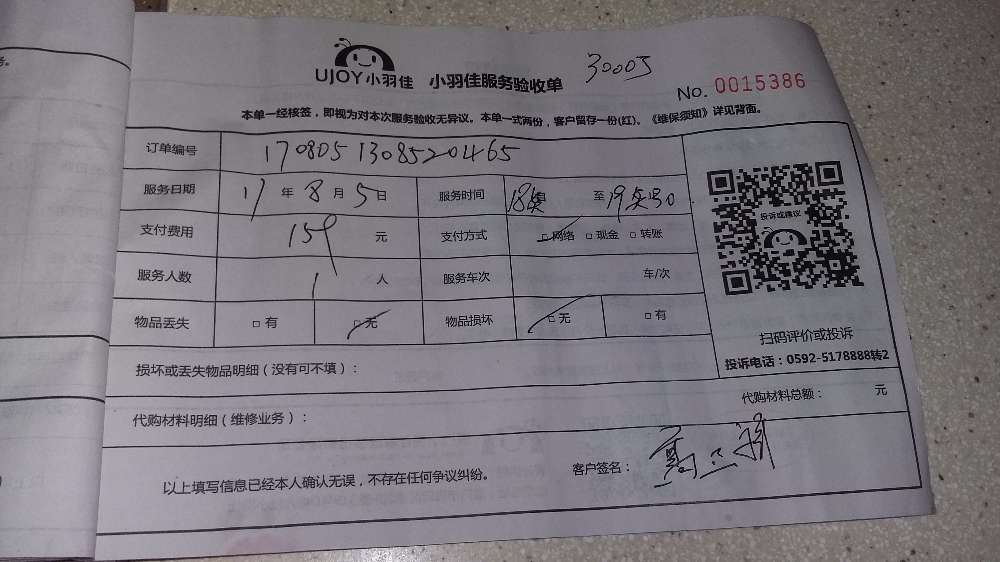 UJOY小羽佳 小羽佳服务验收单 30005
No. 0015386
本单一经核签，即视为对本次服务验收无异议。本单一式两份，客户留存一份(红)。《维保须知》详见背面。
订单编号 170805130852 0465
服务日期 17 年 8 月 5 日 服务时间 18 至 19
支付费用 159 元 支付方式 □网络 □现金 □转账
服务人数 1 人 服务车次 车/次
物品丢失 □有 □无 物品损坏 □无 □有
投诉或建议
扫码评价或投诉
投诉电话：0592-5178888转2
损坏或丢失物品明细（没有可不填）：
代购材料明细（维修业务）： 代购材料总额： 元
以上填写信息已经本人确认无误，不存在任何争议纠纷。 客户签名：